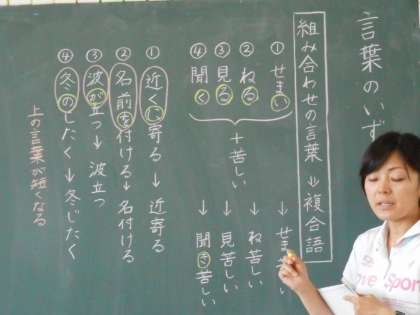 言葉のいず
組み合わせの言葉⇒複合語
①せまい
②ねる
③見る
④聞く
＋苦しい
→せま苦しい
→ね苦しい
→見苦しい
→聞き苦しい
①近くに寄る→近寄る
②名前を付ける→名付ける
③波が立つ→波立つ
④冬のしたく→冬じたく
上の言葉が短くなる
Love Spor